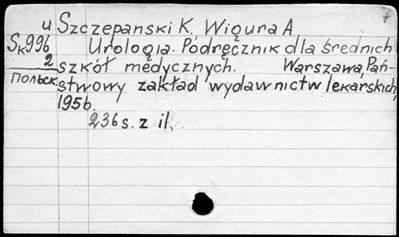 7
и Szczepanski K. Wigura A
Sк996 Urologia. Podręcznik dla średnich
2 szkół medycznych. Warszawa, Pań-
польск. stwowy zakład wydawnictw lekarskich,
1956.
236 s. z il.